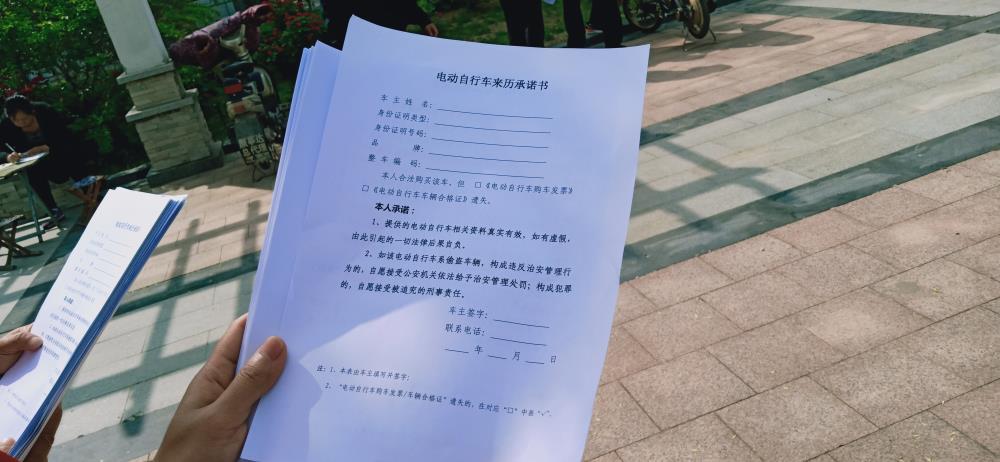 电动自行车来历承诺书
车 主 姓 名：
身份证明类型：
身份证明号码：
品 牌：
整 车 编 码：
本人合法购买该车，但 □《电动自行车购车发票》
□《电动自行车车辆合格证》遗失。
本人承诺：
1、提供的电动自行车相关资料真实有效，如有虚假，
由此引起的一切法律后果自负。
2、如该电动自行车系偷盗车辆，构成违反治安管理行
为的，自愿接受公安机关依法给予治安管理处罚；构成犯罪
的，自愿接受被追究的刑事责任。
车主签字：
联系电话：
年 月 日
注：1、本表由车主填写并签字；
2、“电动自行车购车发票/车辆合格证”遗失的，在对应“□”中画“√”。